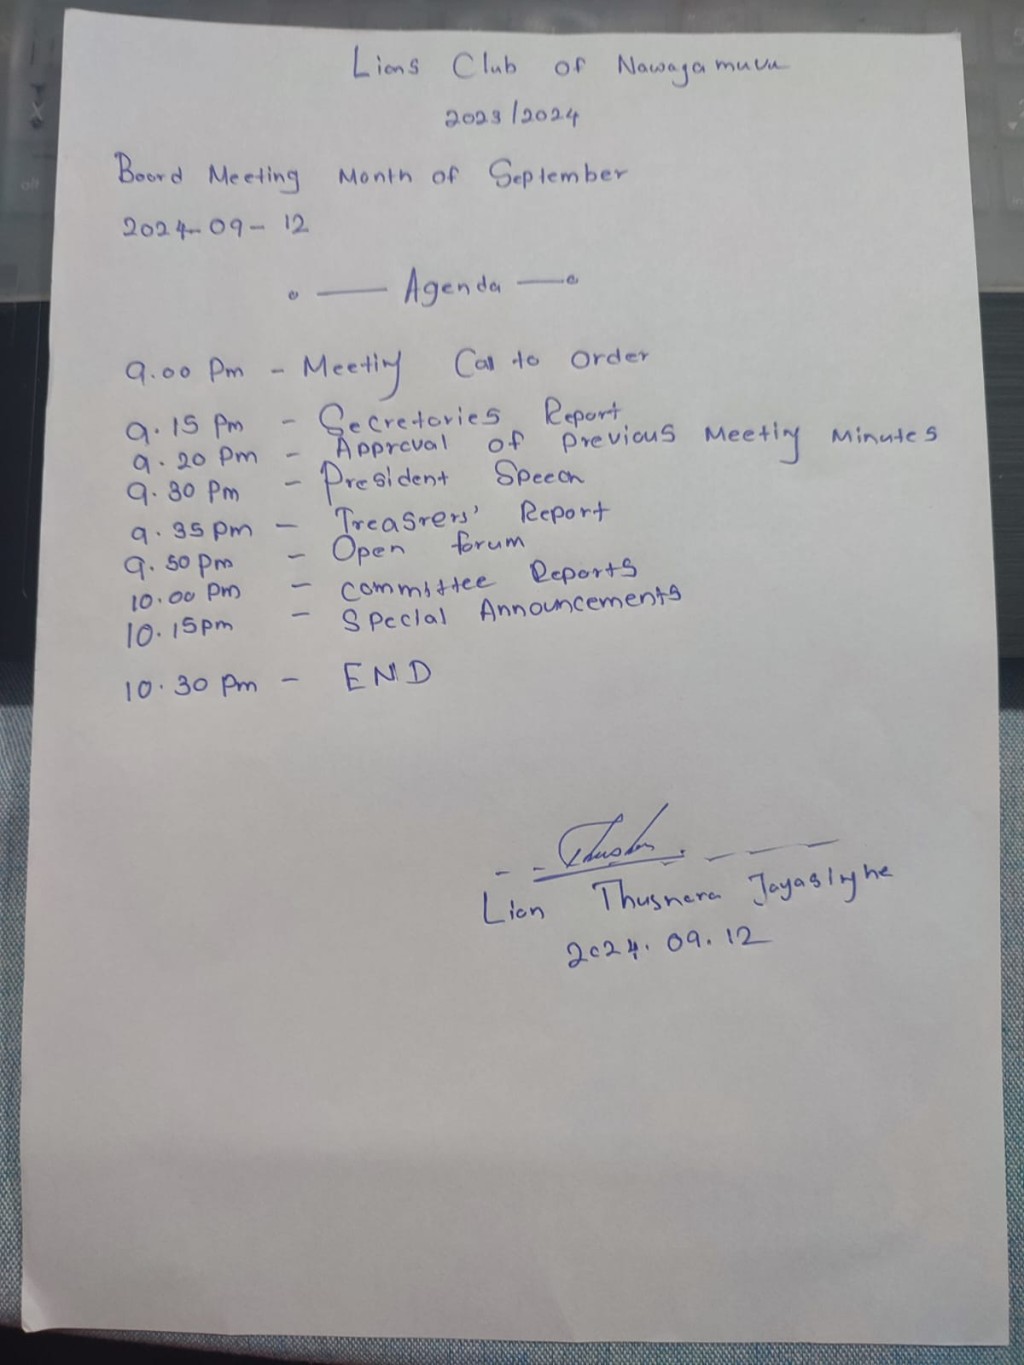 Lions Club of Nawagamuwa
2023/2024
Board Meeting Month of September
2024-09-12
Agenda
9.00 Pm - Meeting Call to Order
9.15 Pm - Secretories Report
9.20 Pm - Approval of Previous Meeting Minutes
9.30 Pm - President Speech
9.35 pm - Treasrers' Report
9.50 pm - Open forum
10.00 pm - Committee Reports
10.15pm - Special Announcements
10.30 pm - END
Lion Thushara Jayasinghe
2024.09.12